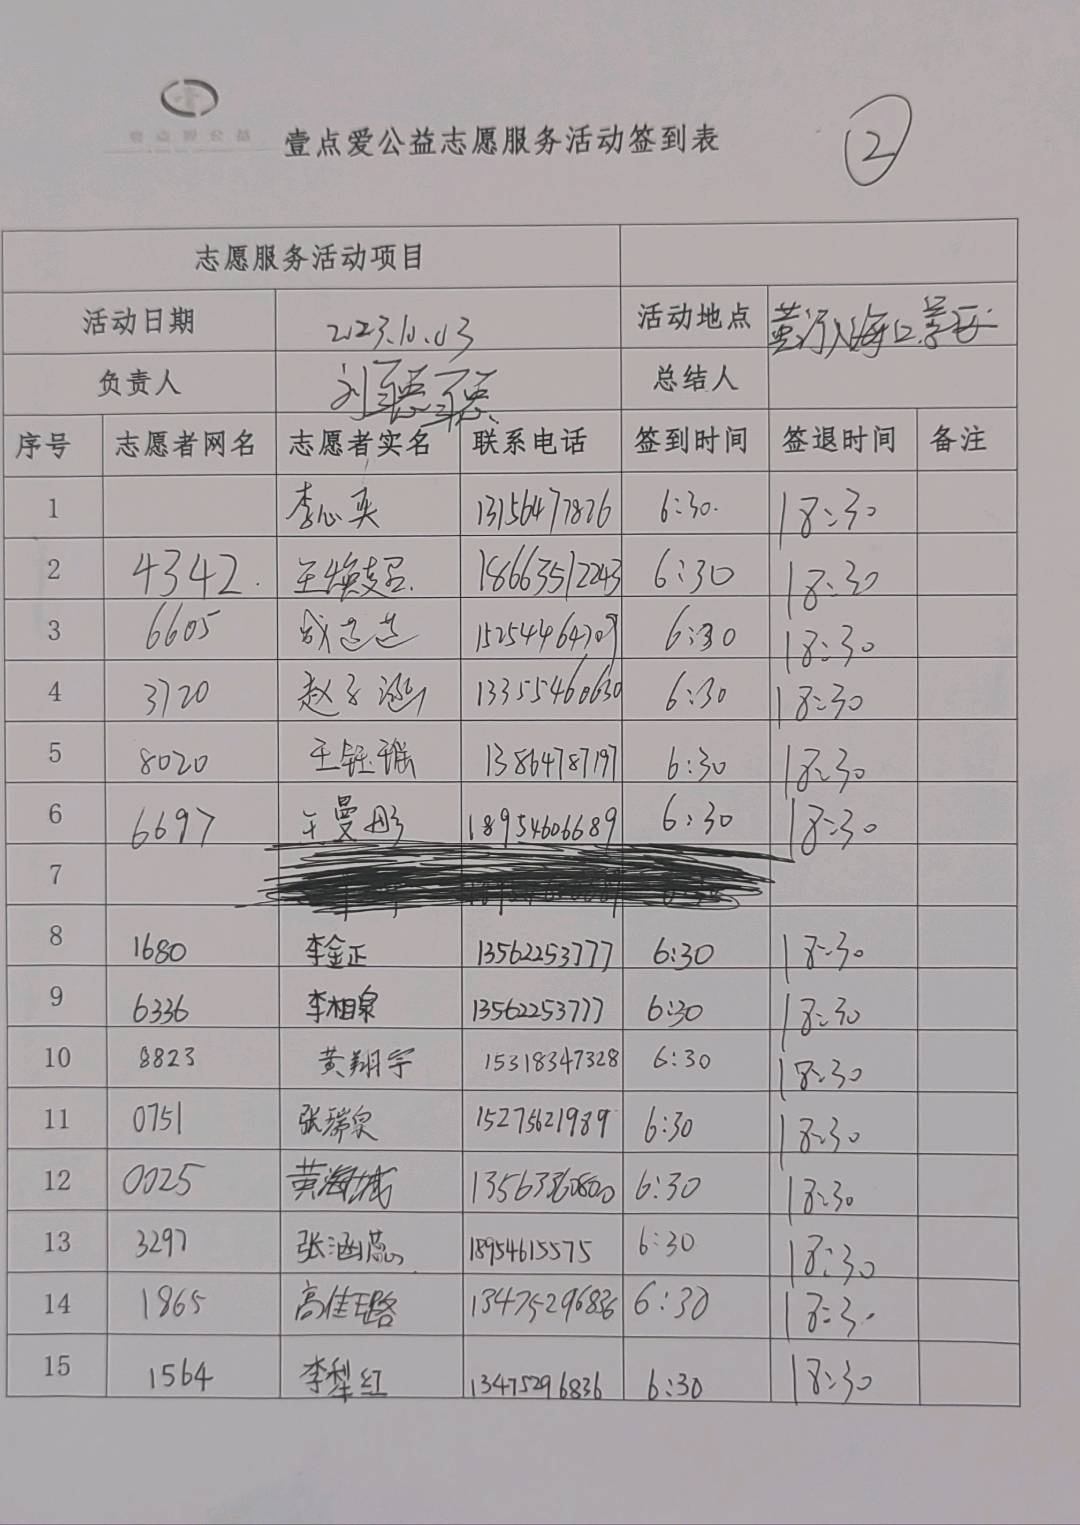 壹点爱公益志愿服务活动签到表
②
志愿服务活动项目
活动日期 2023.10.03 活动地点 黄河入海口
负责人 刘 总结人
序号 志愿者网名 志愿者实名 联系电话 签到时间 签退时间 备注
1 李心奕 13156477826 6:30. 18:30
2 4342. 王焕超. 18663512243 6:30 18:30
3 6605 15254464709 6:30 18:30
4 3720 赵子涵 13355460630 6:30 18:30
5 8020 王钰瑶 13864787197 6:30 18:30
6 6697 王曼彤 18954606689 6:30 18:30
7
8 1680 李金正 13562253777 6:30 18:30
9 6336 李相泉 13562253777 6:30 18:30
10 8823 黄翔宇 15318347328 6:30 18:30
11 0751 张瑞泉 15275621989 6:30 18:30
12 0025 黄海城 6:30 18:30
13 3297 张涵蕊 18954615575 6:30 18:30
14 1865 高佳璐 13475296836 6:30 18:30
15 1564 李梨红 13475296836 6:30 18:30